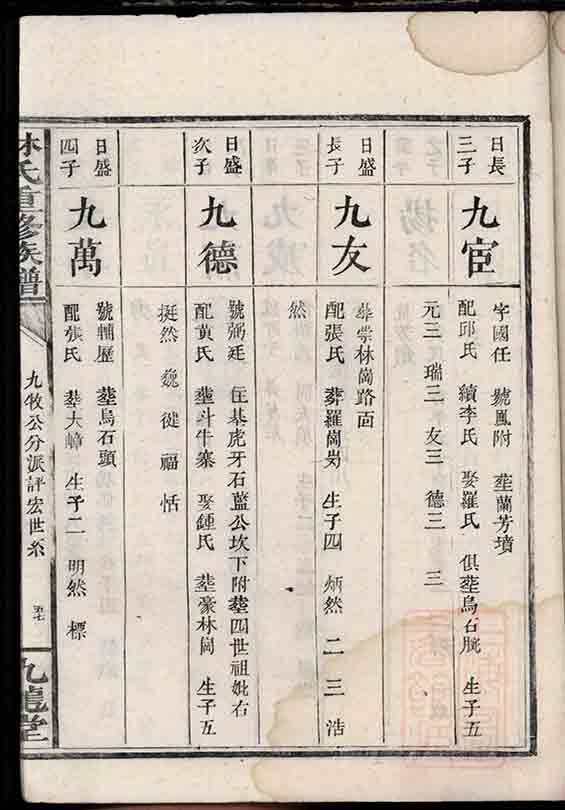 日長
三子
九宦
字國任 號鳳附 塟蘭芳墳
配邱氏 續李氏 娶羅氏 俱塟烏石胱 生子五
元三 瑞三 友三 德三 三
日盛
長子
九友
塟崇林崗路面
配張氏 葬羅崗岃 生子四 炳然 二 三 浩
然
日盛
次子
九德
號弼廷 住基虎牙石藍公坎下附塟四世祖妣右
配黄氏 塟斗牛寨 娶鍾氏 塟豪林崗 生子五
挺然 魏 徙 福 恬
日盛
四子
九萬
號輔歷 塟烏石頭
配張氏 塟大嶂 生子二 明然 標
林氏重修族譜
九牧公分派評宏世系
九龍堂